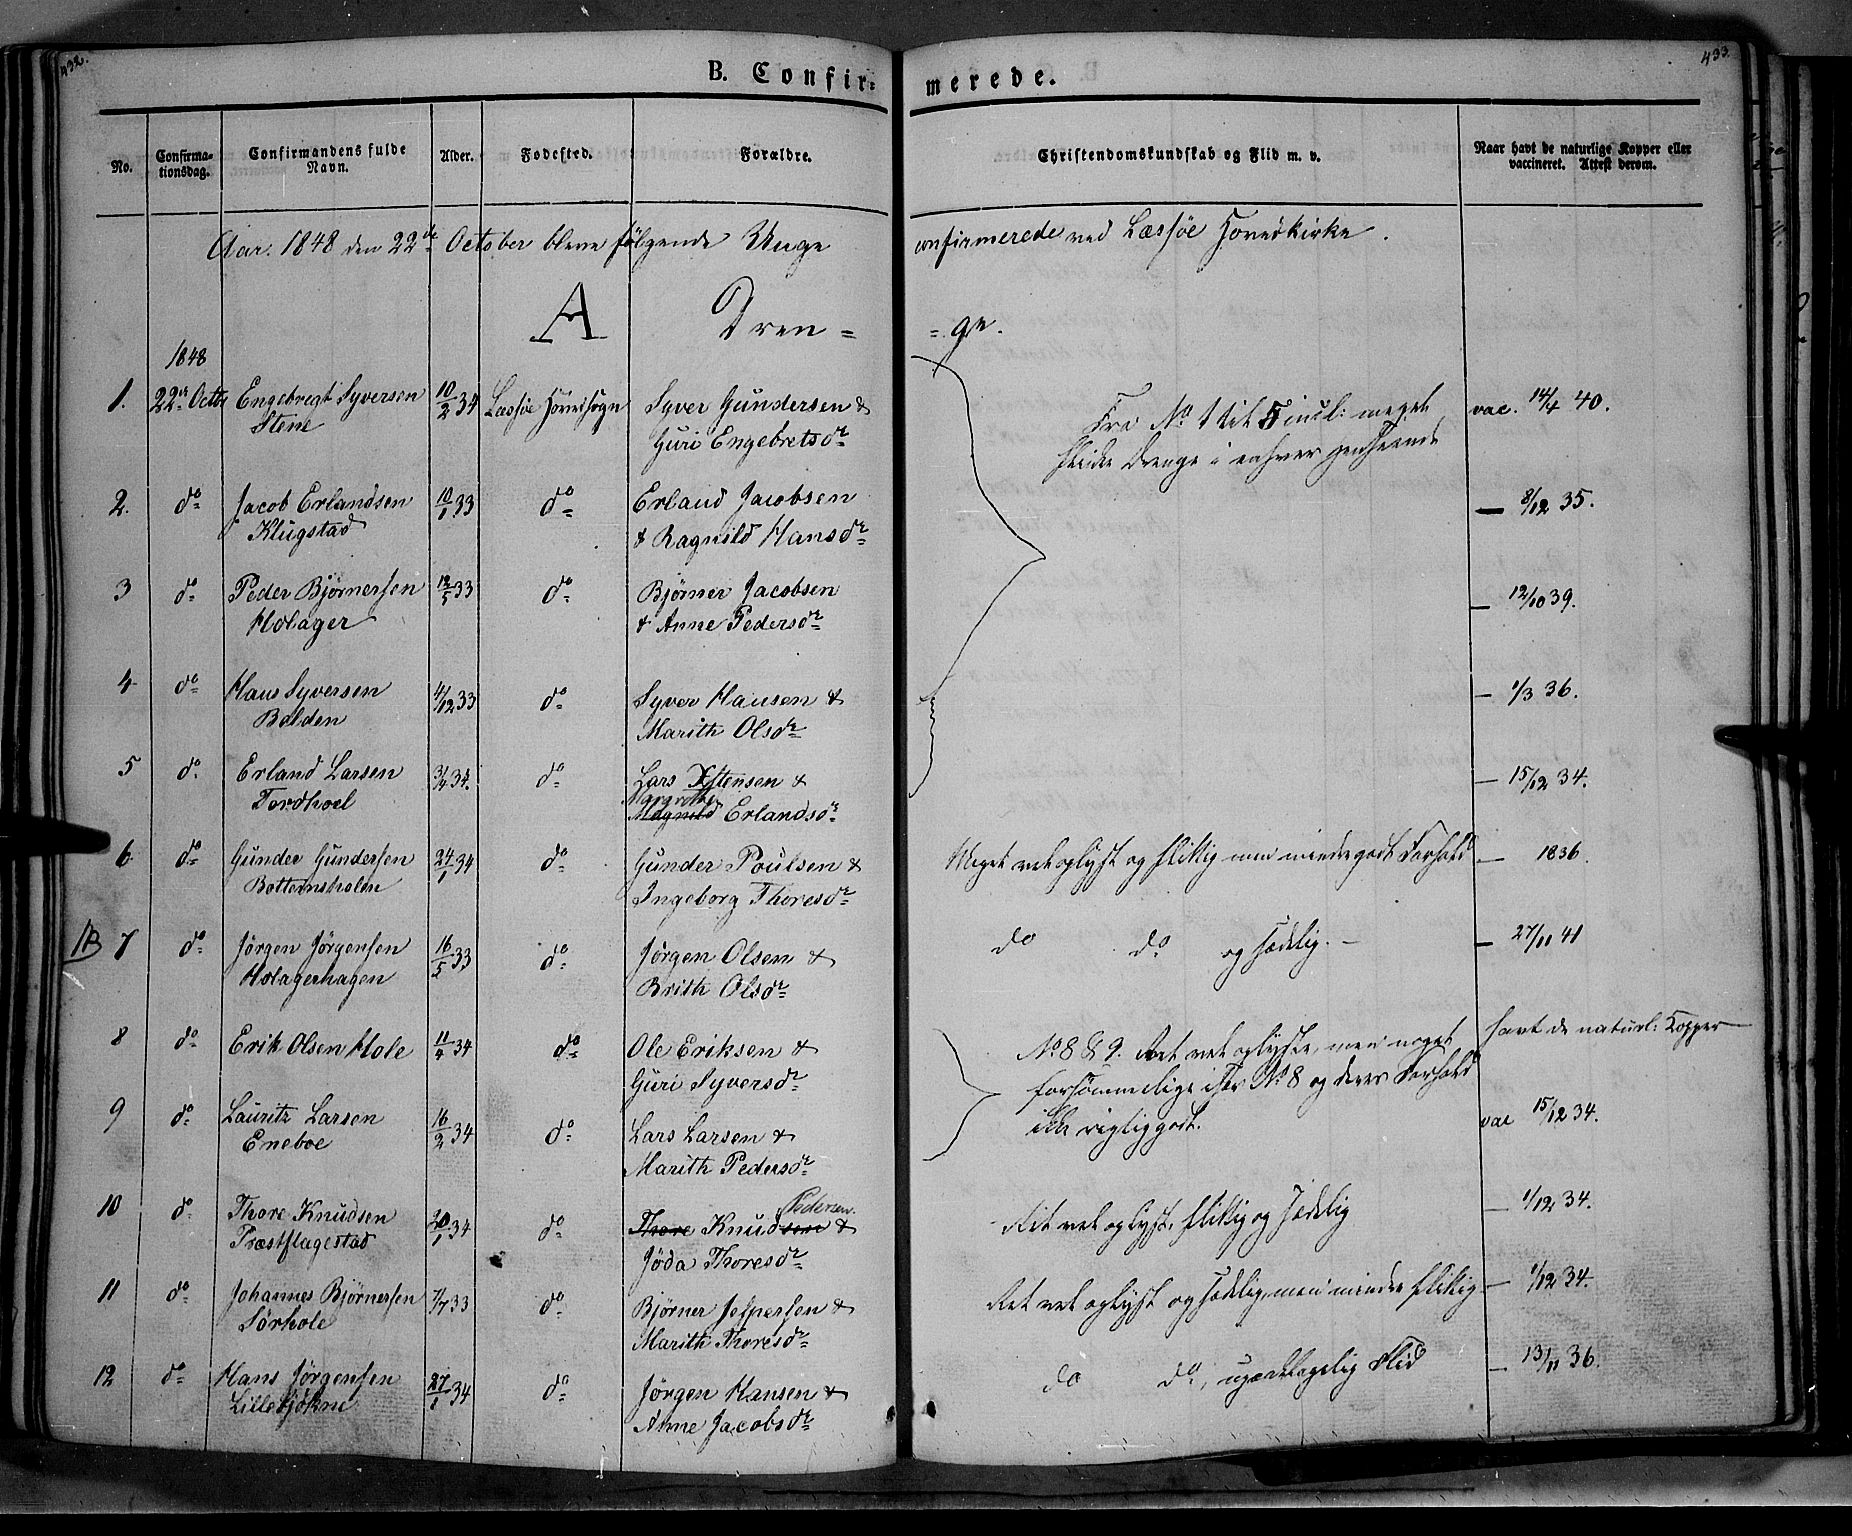 432.
433.
B. Confir=
merede.
No.
Confirma-
tionsdag.
Confirmandens fulde
Navn.
Alder.
Fødested.
Forældre.
Christendomskundskab og Flid m. v.
Naar havt de naturlige Kopper eller
vaccineret. Attest derom.
Aar. 1848 den 22de October bleve følgende Unge
confirmerede ved Læssøe Hovedkirke.
A Dren =
= ge.
1848
1. 22de Octbr Engebregt Syversen 10/2 34 Læssøe Hovedsogn Syver Gundersen &
Stene Guri Engebretsdr
Fra No 1 til 5 incl: meget
flinke Drenge i enhver Henseende
vac. 14/4 40.
2. do Jacob Erlandsen 10/1 33 do Erland Jacobsen
Klugstad & Ragnild Hansdr
— 8/12 35.
3 do Peder Bjørnersen 12/5 33 do Bjørner Jacobsen
Holager & Anne Pedersdr
— 12/10 39.
4 do Hans Syversen 4/12 33 do Syver Hansen &
Bolden Marith Olsdr
— 1/3 36.
5 do Erland Larsen 3/4 34. do Lars Estensen &
Tordhoel Erlandsdr
— 15/12 34.
6 do Gunder Gundersen 24/1 34 do Gunder Poulsen &
Bottemsholen Ingeborg Thoresdr
Meget vel oplyst og flittig men mindre godt Forhold
— 1836.
7 do Jørgen Jørgensen 16/5 33 do Jørgen Olsen &
Holagerhagen Brith Olsdr
do do og sædelig. —
— 27/11 41
8 do Erik Olsen Hole 11/4 34 do Ole Eriksen &
Guri Syversdr
No 8 & 9. Ret vel oplyste, men noget
forsømmelige især No 8 og deres Forhold
ikke rigtig godt.
havt de naturl: Kopper
9 do Lauritz Larsen 16/2 34 do Lars Larsen &
Eneboe Marith Pedersdr
vac 15/12 34.
10 do Thore Knudsen 20/1 34 do Thore Knudsen &
Pedersen.
Præstflagestad Jøda Thoresdr
Ret vel oplyst, flittig og sædelig
— 1/12 34.
11 do Johannes Bjørnersen 7/7 33 do Bjørner Jespersen &
Sørhole Marith Thoresdr
Ret vel oplyst og sædelig, men mindre flittig
— 1/12 34.
12 do Hans Jørgensen 27/1 34 do Jørgen Hansen &
Anne Jacobsdr
do do, Flid
— 13/11 36.